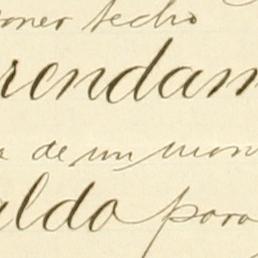 poner techo
rendam
a de un mon
aldo para